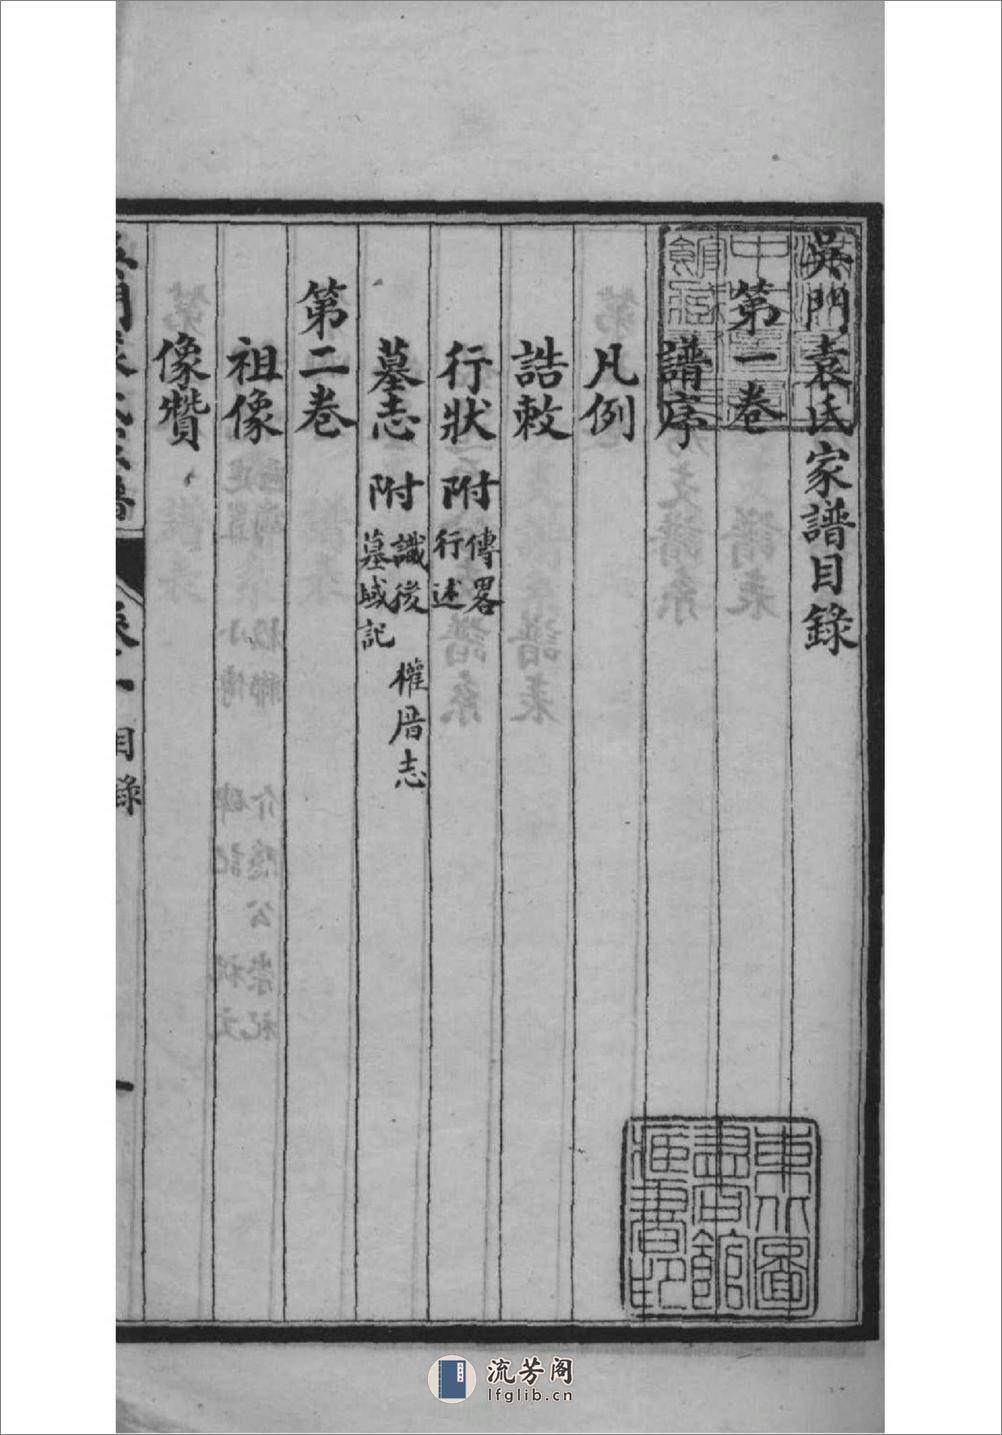 吳門袁氏家譜目錄
第一卷
譜序
凡例
誥敕
行狀 附 傳畧 行述
墓志 附 識後 權厝志 墓域記
第二卷
祖像
像贊
吳門袁氏家譜
卷一目錄
一
東北圖書館所藏書印
流芳阁
lfglib.cn